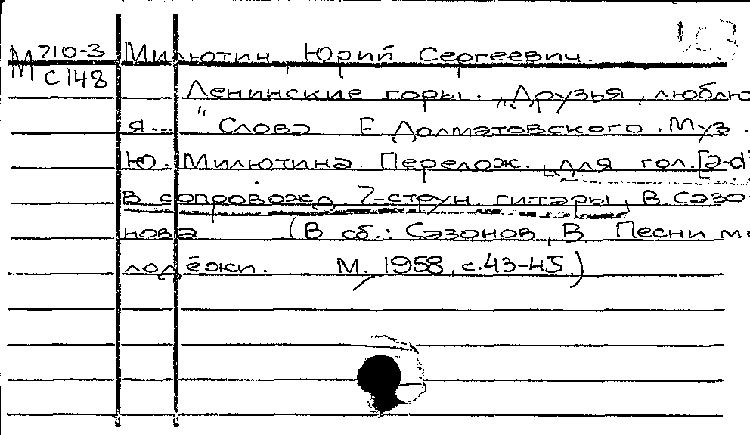 М 710-3 Милютин, Юрий Сергеевич.
С 148
Ленинские горы. „Друзья, люблю
я... " Слова Е. Долматовского. Муз.
Ю. Милютина. Перелож. для гол. [a-d]
в сопровожд. 7-струн. гитары, В. Сазо
нова (В сб.: Сазонов, В. Песни мо
лодёжи. М., 1958, с. 43-45)